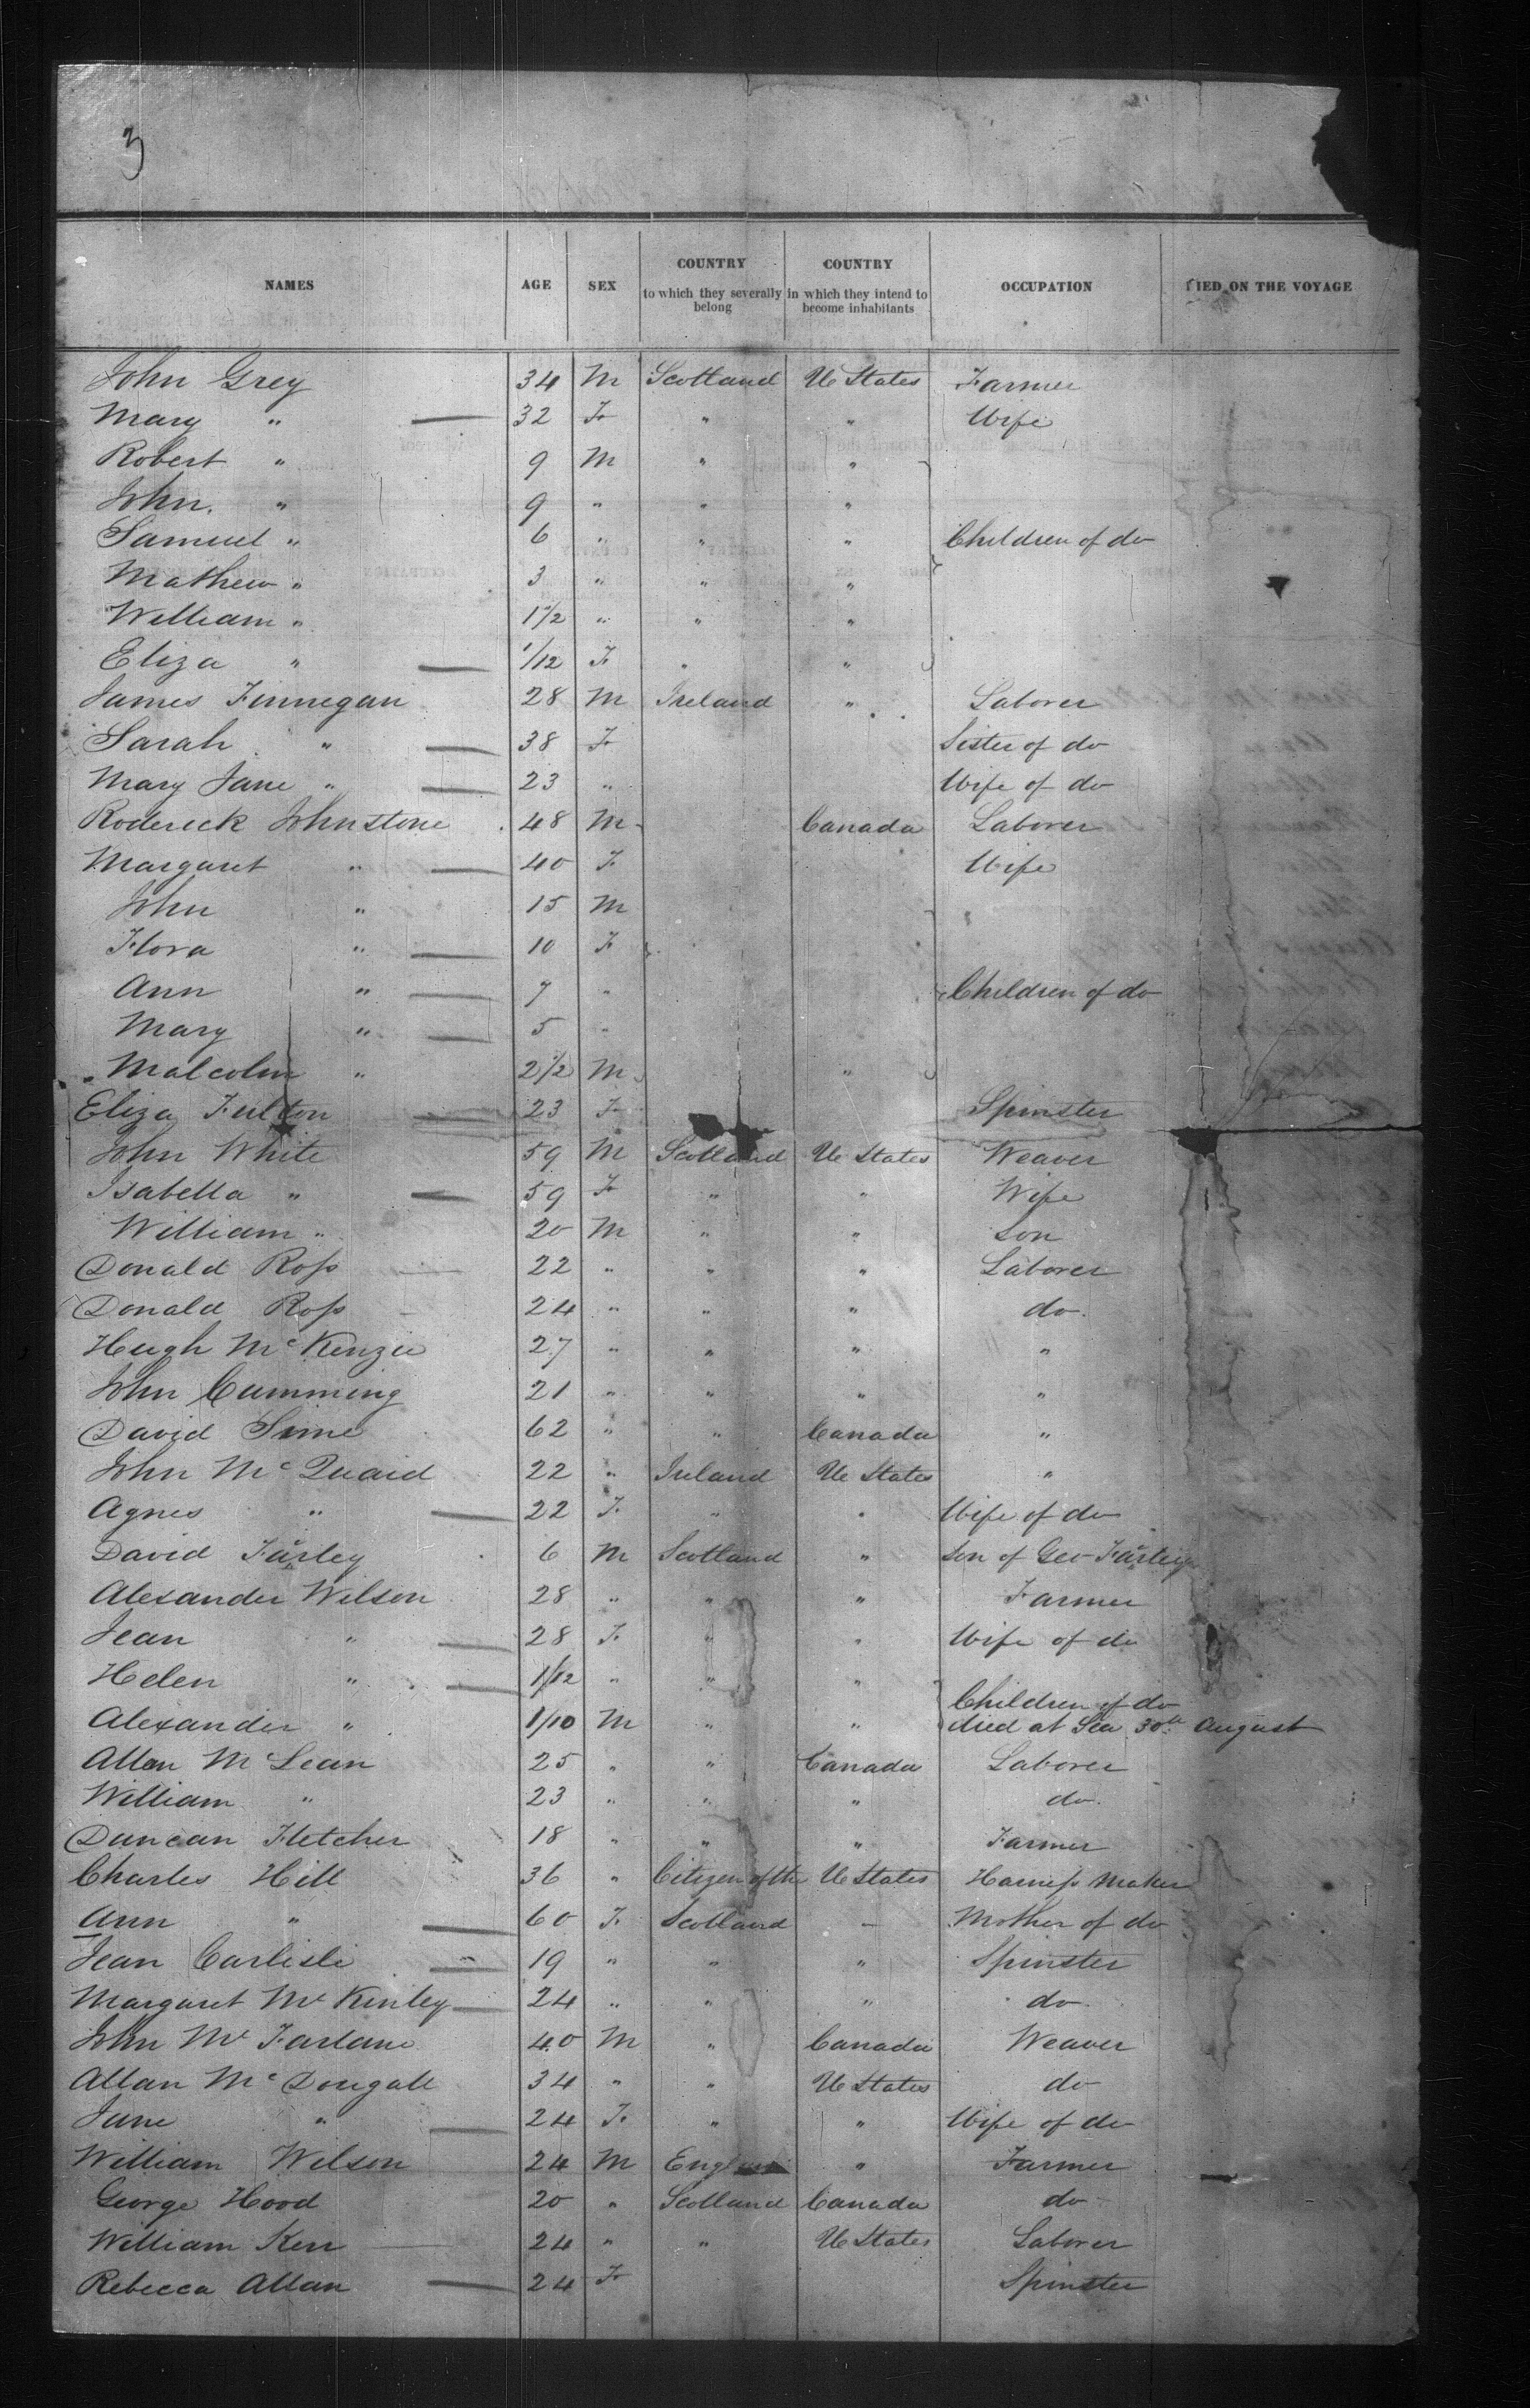 3
NAMES AGE SEX COUNTRY to which they severally belong COUNTRY in which they intend to become inhabitants OCCUPATION DIED ON THE VOYAGE
John Grey 34 M Scotland U States Farmer
Mary " 32 F " " Wife
Robert " 9 M " "
John. " 9 " " "
Samuel " 6 " " " Children of do
Mathew " 3 " " "
William " 1 1/2 " " "
Eliza " 1/12 F " "
James Finnegan 28 M Ireland " Laborer
Sarah " 38 F Sister of do
Mary Jane " 23 " Wife of do
Roderick Johnstone 48 M Canada Laborer
Margaret " 40 F Wife
John " 15 M
Flora " 10 F
Ann " 7 " Children of do
Mary " 5 "
Malcolm " 2 1/2 M "
Eliza Fulton 23 F Spinster
John White 59 M Scotland U States Weaver
Isabella " 59 F " " Wife
William " 20 M " " Son
Donald Ross 22 " " " Laborer
Donald Ross 24 " " " do.
Hugh McKenzie 27 " " " "
John Cumming 21 " " " "
David Sime 62 " " Canada "
John McQuaid 22 " Ireland U States "
Agnes " 22 F " " Wife of do
David Farley 6 M Scotland " Son of Geo Farley
Alexander Wilson 28 " " " Farmer
Jean " 28 F " " Wife of do
Helen " 1/12 " " " Children of do
Alexander " 1/10 M " " died at Sea 30th August
Allan McLean 25 " " Canada Laborer
William " 23 " " " do.
Duncan Fletcher 18 " " " Farmer
Charles Hill 36 " Citizen of the U States Harness Maker
Ann " 60 F Scotland – Mother of do
Jean Carlisle 19 " " " Spinster
Margaret McKinley 24 " " " do.
John McFarlane 40 M " Canada Weaver
Allan McDougall 34 " " U States do
Jane " 24 F " " Wife of do
William Wilson 24 M England " Farmer
George Hood 20 " Scotland Canada do
William Kerr 24 " " U States Laborer
Rebecca Allan 24 F Spinster